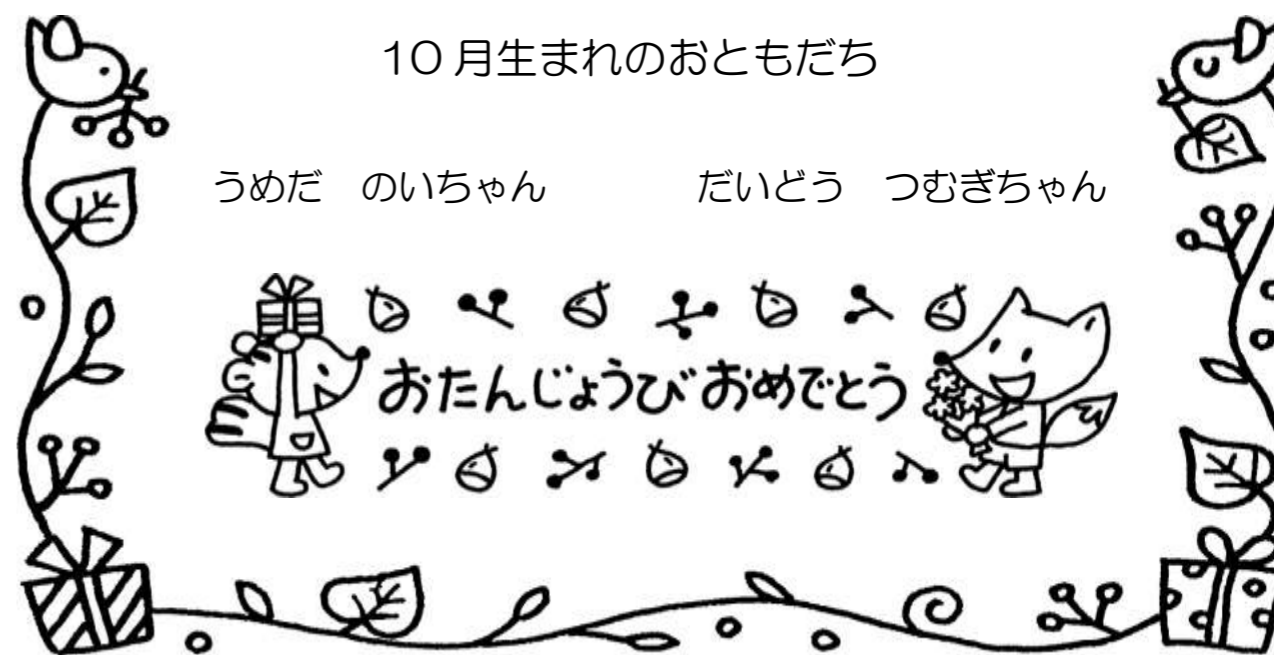 10月生まれのおともだち
うめだ　のいちゃん　　　　だいどう　つむぎちゃん
おたんじょうびおめでとう